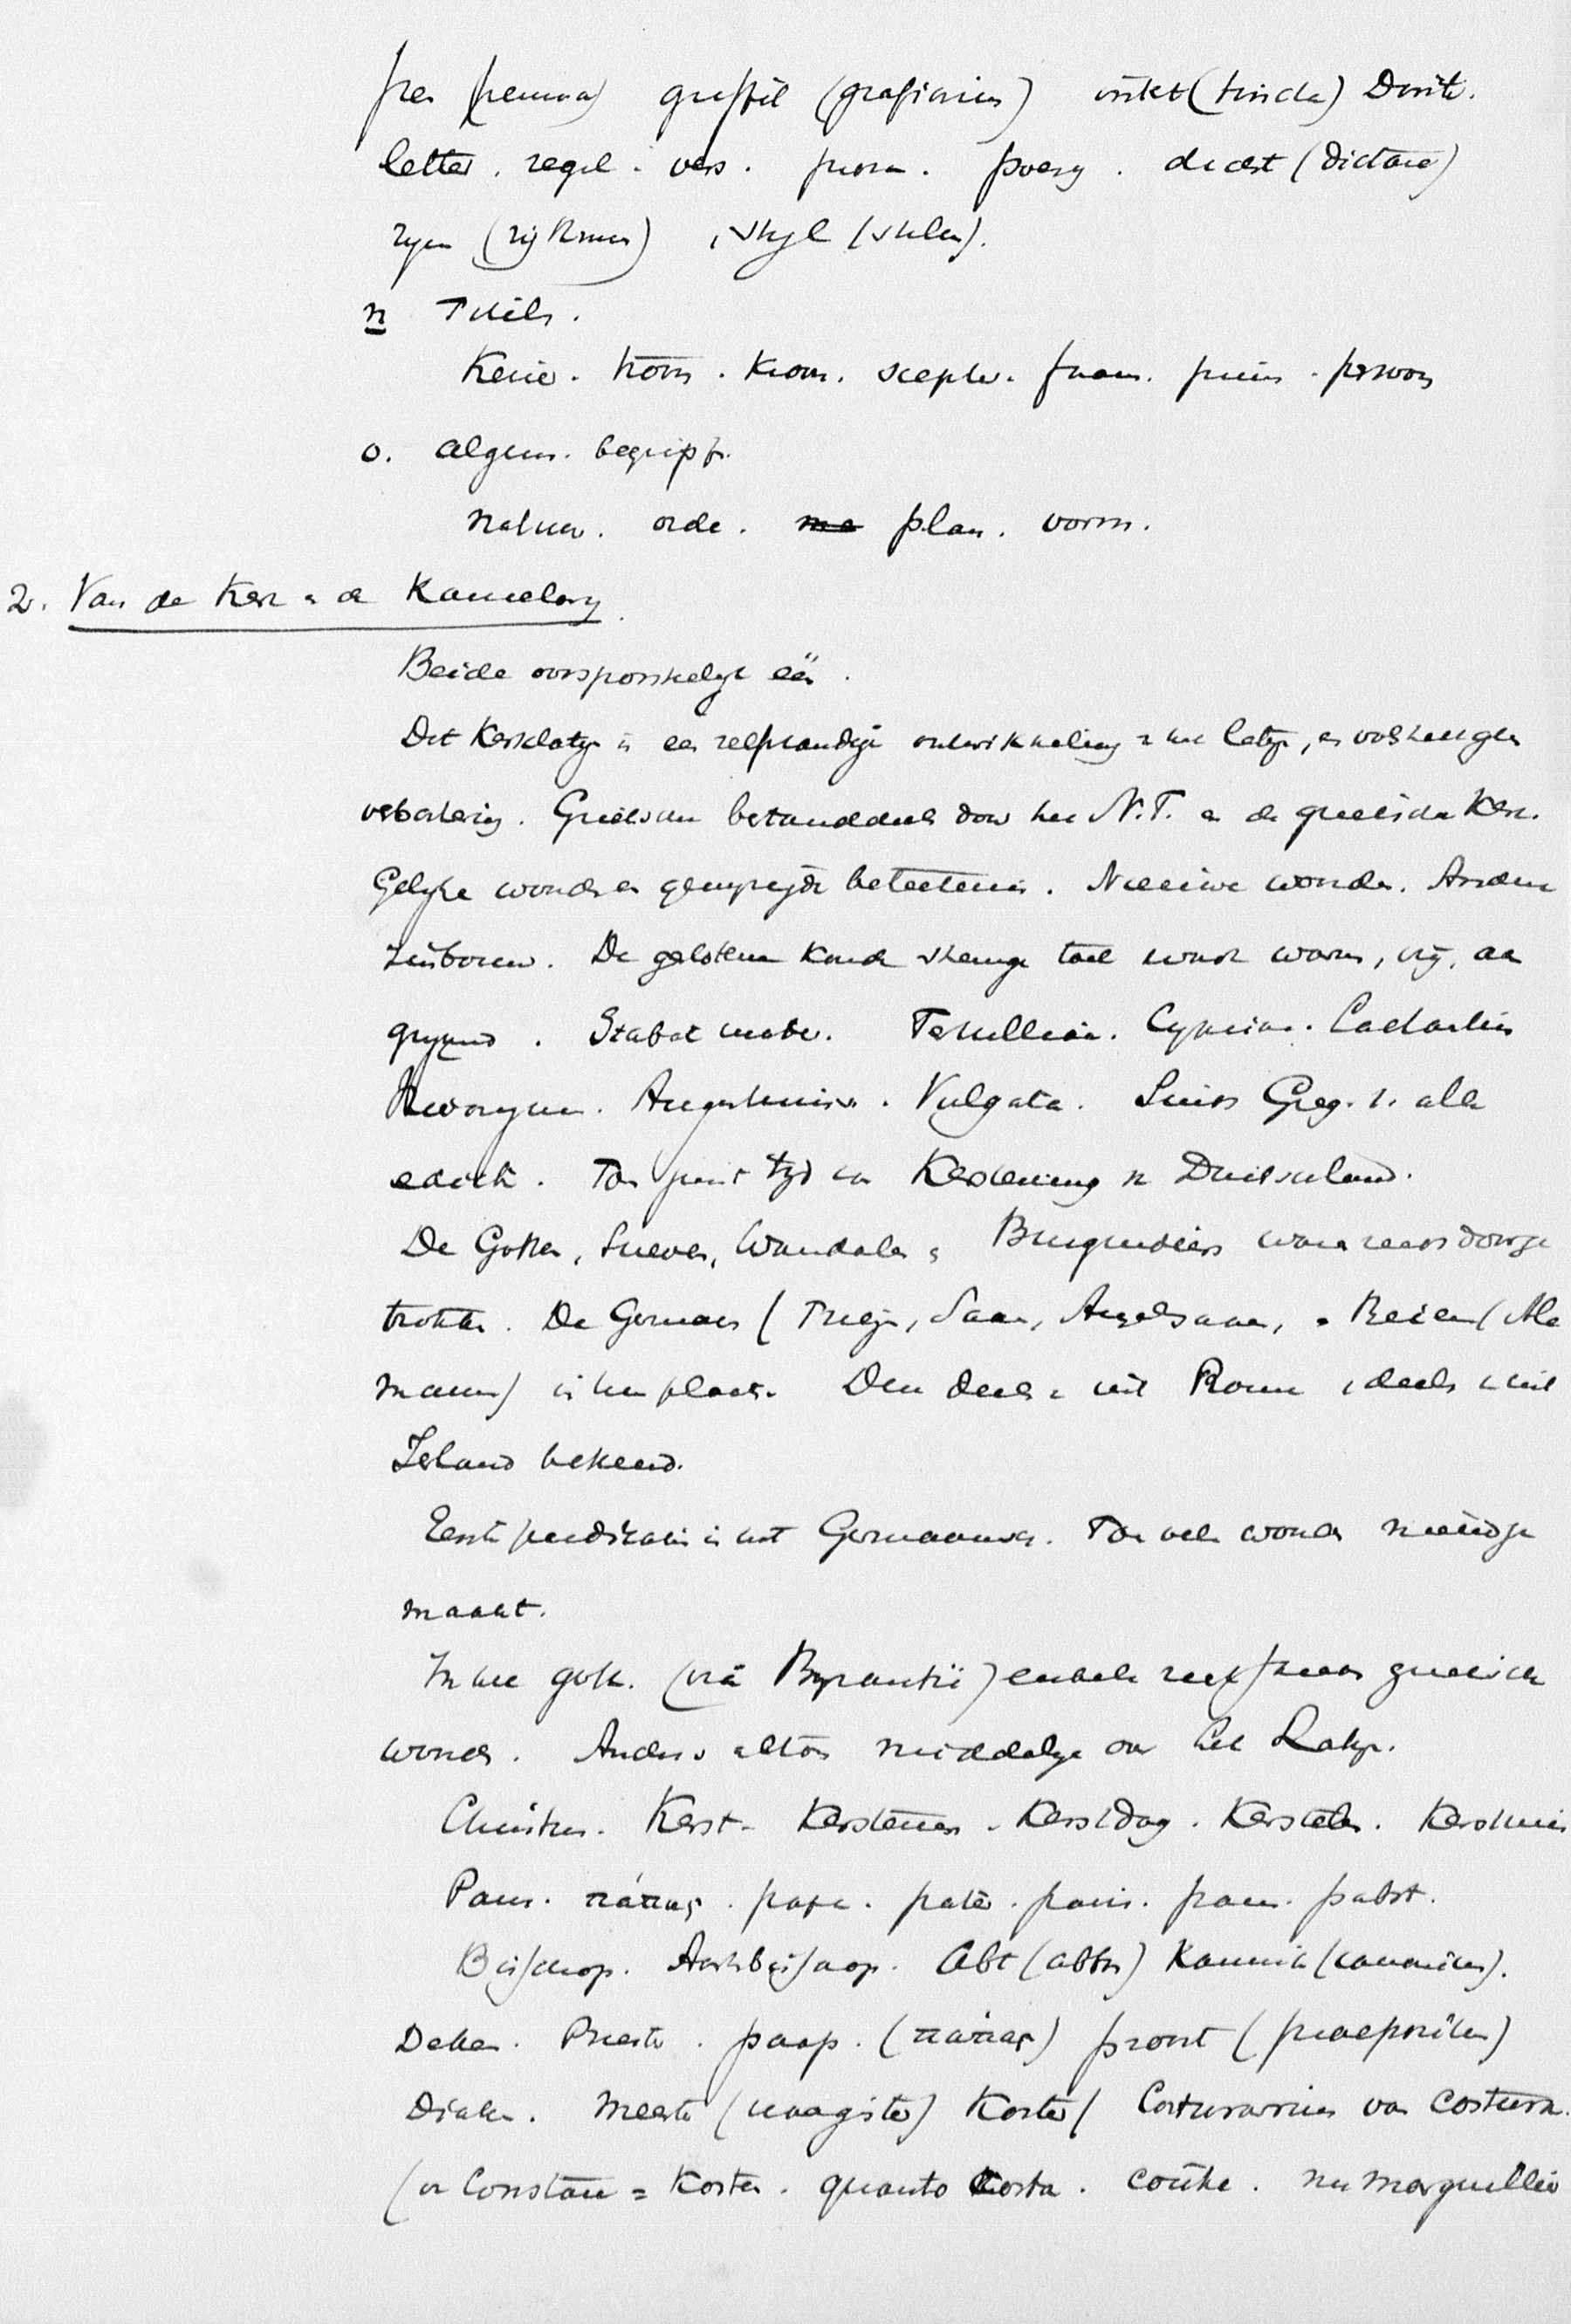 pen (penna) griffel (grafium) inkt (tincta) Dinte.
letter. regel. vers. proza. poezy. dicht (dictare)
rym (rythmus), styl (stilus).
n Titels.
Keizer. troon. kroon. scepter. prins. persoon
o. algem. begrippen.
natuur. orde. plan. vorm.
2. Van de Kerk en de Kanselary.
Beide oorspronkelyk één.
Dit Kerklatyn is een zelfstandige ontwikkeling van het latyn, en
verbastering. Grieksche bestanddeelen door het N.T. en de grieksche Kerk.
Gelyke woorden en gewyzigde beteekenis. Nieuwe woorden. Andere
zinbouw. De geslotene koude strenge taal wordt warm, vrij, aan
grypend. Stabat mater. Tertulliaan. Cypriaan. Lactantius
Hieronymus. Augustinus. Vulgata. Sinds Greg. I. alle
edicten. Toen juist tyd van Kerstening in Duitschland.
De Gothen, Sueven, Wandalen en Burgundiërs waren reeds doorge
trokken. De Germanen (Friezen, Saxen, Angelsaxen, en Beieren (Ale
mannen) in hun plaats. Deze deels uit Rome, deels uit
Ierland bekeerd.
Eerste predikatie in het Germaansch. Toen vele woorden ge
maakt.
In het goth. (via Byzantië) enkele rechtstreeks grieksche
woorden. Anders altoos middelyk over het Latyn.
Christus. Kerst. Kerstenen. Kerstdag. Kerstmis
Paus. πάπας. papa. pater. paus. pabst.
Bisschop. Aartsbisschop. Abt (abbas) Kanunnik (canonicus).
Deken. Priester. paap. (πάπας) proost (praepositus)
Diaken. Meester (magister) Koster (Costurarius van costura.
(van Constare = Kosten. quanto costa. coûte. marguillier